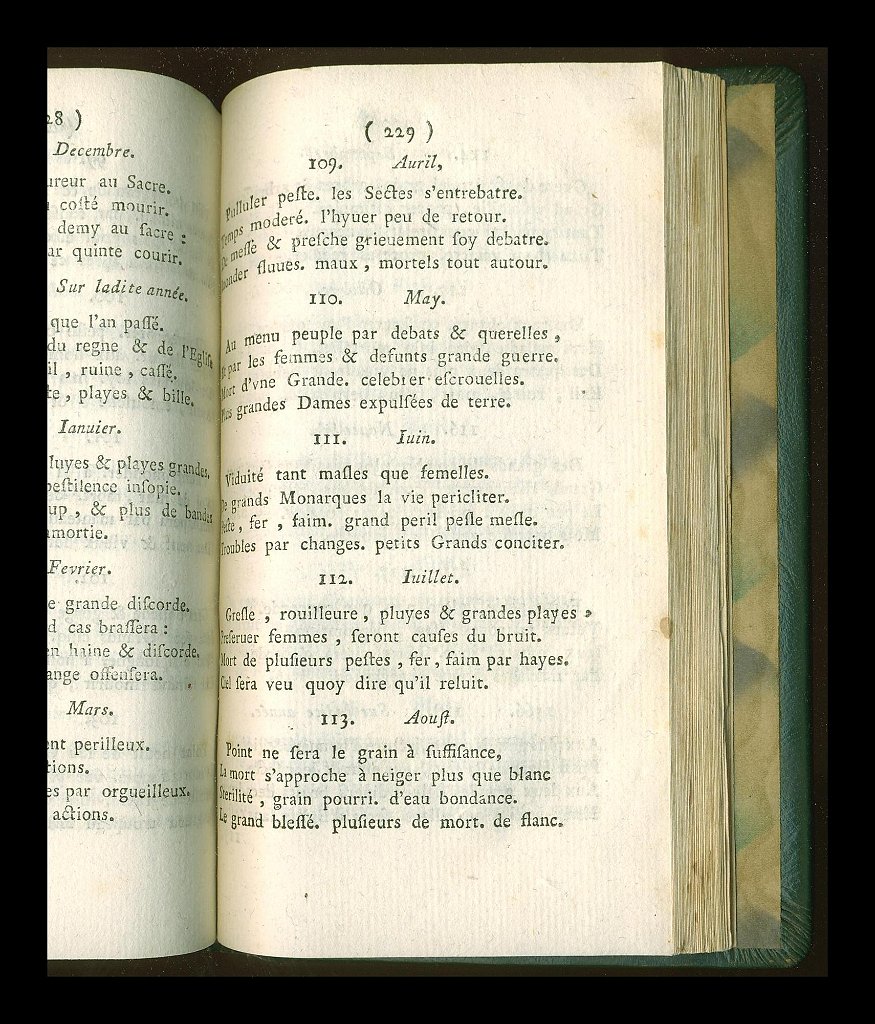 28 )
Decembre.
ureur au Sacre.
costé mourir.
demy au sacre :
ar quinte courir.
Sur ladite année.
que l'an passé.
du regne & de l'Eglise
il , ruine , cassé.
te , playes & bille.
Ianuier.
luyes & playes grandes,
pestilence insopie.
up , & plus de bandes
amortie.
Fevrier.
e grande discorde.
d cas brassera :
en haine & discorde.
ange offensera.
Mars.
nt perilleux.
tions.
es par orgueilleux.
actions.
( 229 )
109. Auril,
Pulluler peste. les Sectes s'entrebatre.
Temps moderé. l'hyuer peu de retour.
De messe & presche grieuement soy debatre.
Inonder fluues. maux , mortels tout autour.
110. May.
Au menu peuple par debats & querelles ,
Et par les femmes & defunts grande guerre.
Mort d'vne Grande. celebrer escrouelles.
Plus grandes Dames expulsées de terre.
111. Iuin.
Viduité tant masles que femelles.
De grands Monarques la vie pericliter.
Peste , fer , faim. grand peril pesle mesle.
Troubles par changes. petits Grands conciter.
112. Iuillet.
Gresle , rouilleure , pluyes & grandes playes ,
Preseruer femmes , seront causes du bruit.
Mort de plusieurs pestes , fer , faim par hayes.
Ciel sera veu quoy dire qu'il reluit.
113. Aoust.
Point ne sera le grain à suffisance,
La mort s'approche à neiger plus que blanc
Sterilité , grain pourri. d'eau bondance.
Le grand blessé. plusieurs de mort. de flanc.